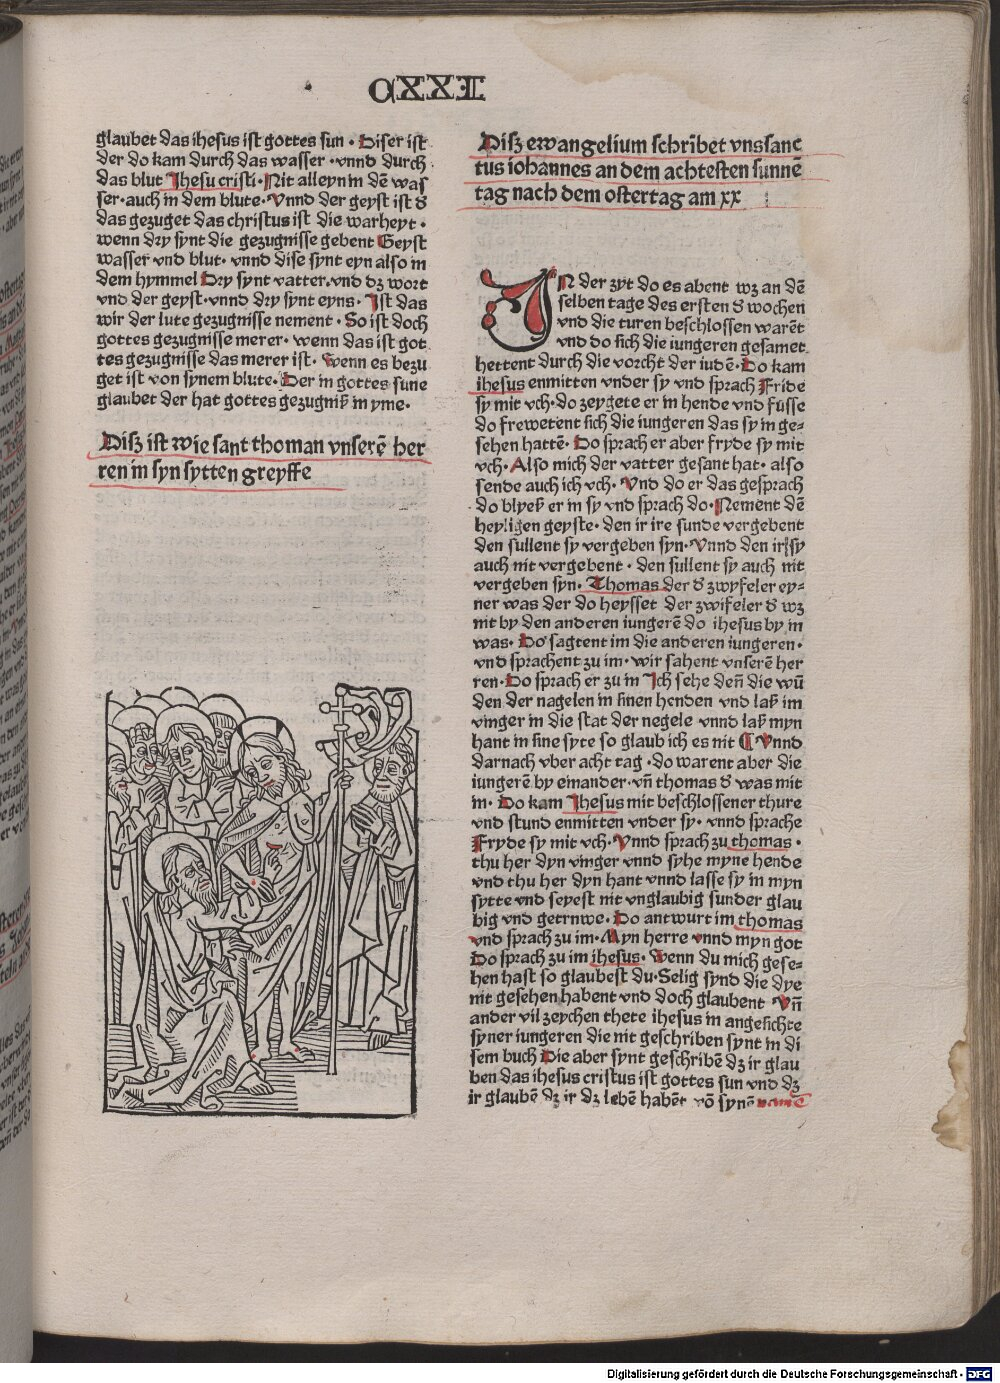 CXXI
glaubet das ihesus ist gottes sun · Diser ist
der do kam durch das wasser · vnnd durch
das blut Jhesu cristi · Nit alleyn in dē was
ser · auch in dem blute · Vnnd der geyst ist d̕
das gezuget das christus ist die warheyt ·
wenn dry synt die gezugnisse gebent Geyst
wasser vnd blut · vnnd dise synt eyn also in
dem hymmel Dry synt vatter · vnd dz wort
vnd der geyst · vnnd dry synt eyns · Ist das
wir der lute gezugnisse nement · So ist doch
gottes gezugnisse merer · wenn das ist got
tes gezugnisse das merer ist · Wenn es bezu
get ist von synem blute · Der in gottes sune
glaubet der hat gottes gezugniß in yme ·
Disz ist wie sant thoman vnserē her
ren in syn sytten greyffe
Disz ewangelium schribet vns sanc
tus iohannes an dem achtesten sunnē
tag nach dem ostertag am xx
IN der zyt do es abent wz an dē
selben tage des ersten d̕ wochen
vnd die turen beschlossen warēt
vnd do sich die iungeren gesamet
hettent durch die vorcht der iudē · Do kam
ihesus enmitten vnder sy vnd sprach Fride
sy mit vch · do zeygete er in hende vnd füsse
do frewetent sich die iungeren das sy in ge-
sehen hattē · Do sprach er aber fryde sy mit
vch · Also mich der vatter gesant hat · also
sende auch ich vch · Vnd do er das gesprach
do blyeß er in sy vnd sprach do · Nement dē
heyligen geyste · den ir ire sunde vergebent
den sullent sy vergeben syn · Vnnd den ir sy
auch nit vergebent · den sullent sy auch nit
vergeben syn · Thomas der d̕ zwyfeler ey-
ner was der do heysset der zwifeler d̕ wz
nit by den anderen iungerē do ihesus by in
was · Do sagtent im die anderen iungeren ·
vnd sprachent zu im · wir sahent vnserē her
ren · Do sprach er zu in Ich sehe deñ die wū
den der nagelen in sinen henden vnd laß im
vinger in die stat der negele vnnd laß myn
hant in sine syte so glaub ich es nit ¶ Vnnd
darnach vber acht tag · do warent aber die
iungerē by einander · vñ thomas d̕ was mit
in · Do kam Jhesus mit beschlossener thure
vnd stund enmitten vnder sy · vnnd sprache
Fryde sy mit vch · Vnnd sprach zu thomas ·
thu her dyn vinger vnnd syhe myne hende
vnd thu her dyn hant vnnd lasse sy in myn
sytte vnd seyest nit vnglaubig sunder glau
big vnd getrnwe · Do antwurt im thomas
vnd sprach zu im · Myn herre vnnd myn got
Do sprach zu im ihesus · Wenn du mich gese-
hen hast so glaubest du · Selig synd die dye
nit gesehen habent vnd doch glaubent Vñ
ander vil zeychen thete ihesus in angesichte
syner iungeren die nit geschriben synt in di
sem buch Die aber synt geschribē dz ir glau
ben das ihesus cristus ist gottes sun vnd dz
ir glaubē dz ir dz lebē habēt vō synē namē
Digitalisierung gefördert durch die Deutsche Forschungsgemeinschaft - DFG